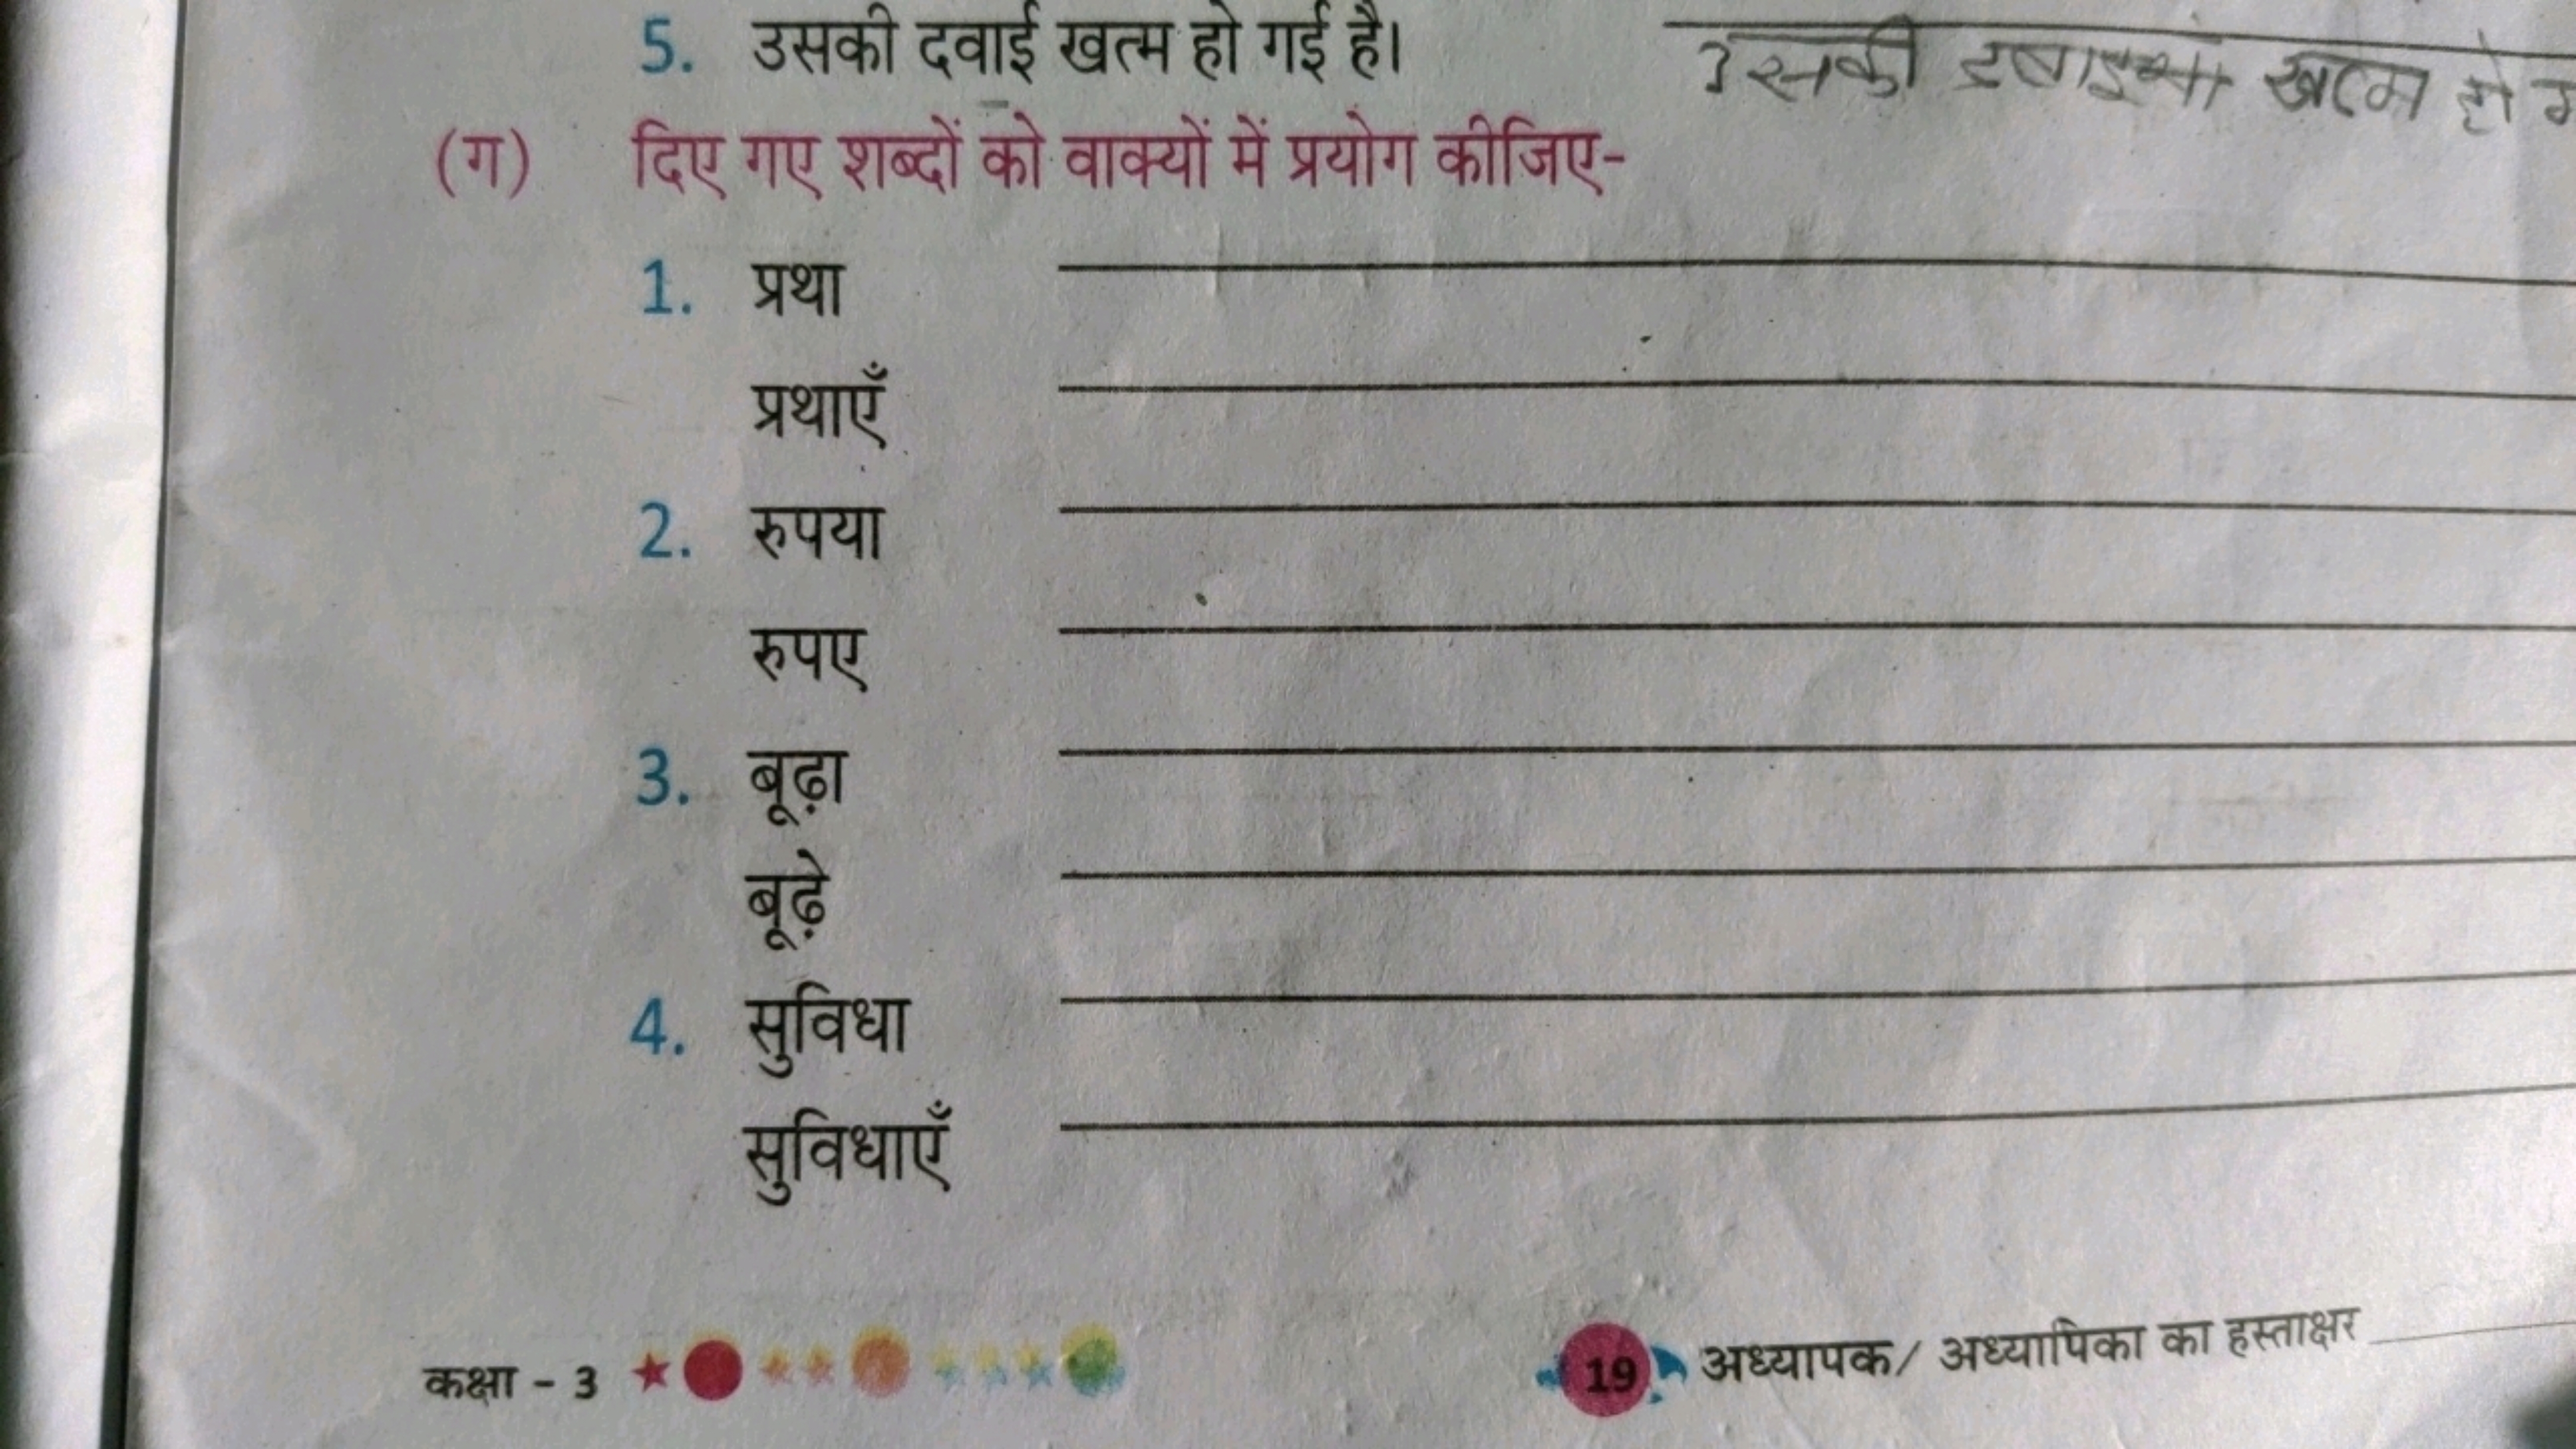 5. उसकी दवाई खत्म हो गई है। उसकी दवाइयाँ खत्म हो
(ग) दिए गए शब्दों को वाक्यों में प्रयोग कीजिए-
1. प्रथा
प्रथाएँ
2. रुपया
रुपए
3. बूढ़ा
बूढ़े
4. सुविधा
सुविधाएँ
कक्षा - 3 19 अध्यापक/ अध्यापिका का हस्ताक्षर